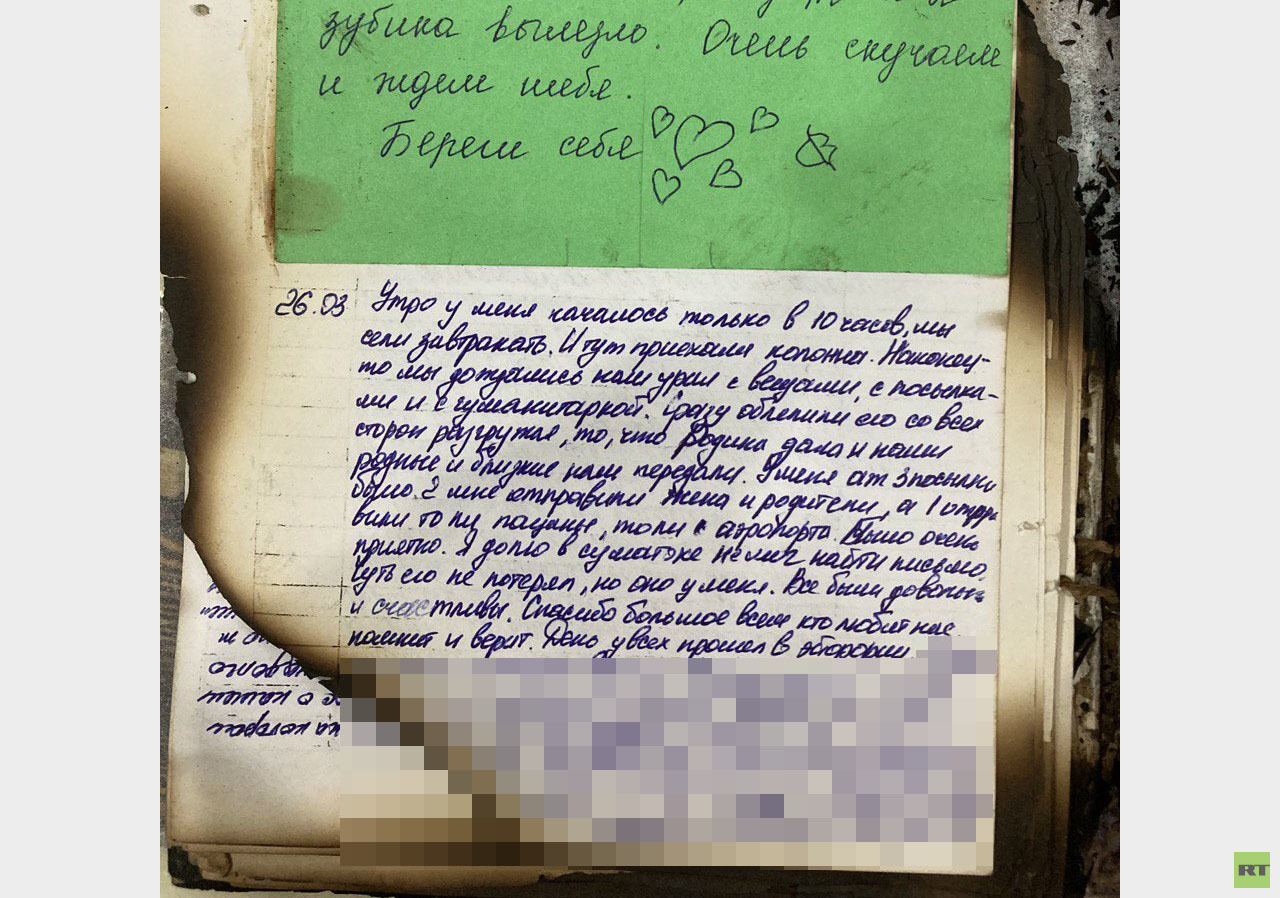 зубика вылезло. Очень скучаем
и ждем тебя.
Береги себя
26.03 Утро у меня началось только в 10 часов, мы
сели завтракать. И тут приехала колонна. Наконец-
то мы дождались наш урал с вещами, с посылка-
ми и с гуманитаркой. Сразу облепили его со всех
сторон разгружая, то, что Родина дала и наши
родные и близкие нам передали. У меня аж 3 посылки
было. 2 мне отправили жена и родители, а 1 отпра
вили то ли пацаны, то ли с аэропорта. Было очень
приятно. Я долго в суматохе не мог найти письмо,
чуть его не потерял, но оно у меня. Все были довольны
и счастливы. Спасибо большое всем кто любит нас,
помнит и верит. День у всех прошел в
RT